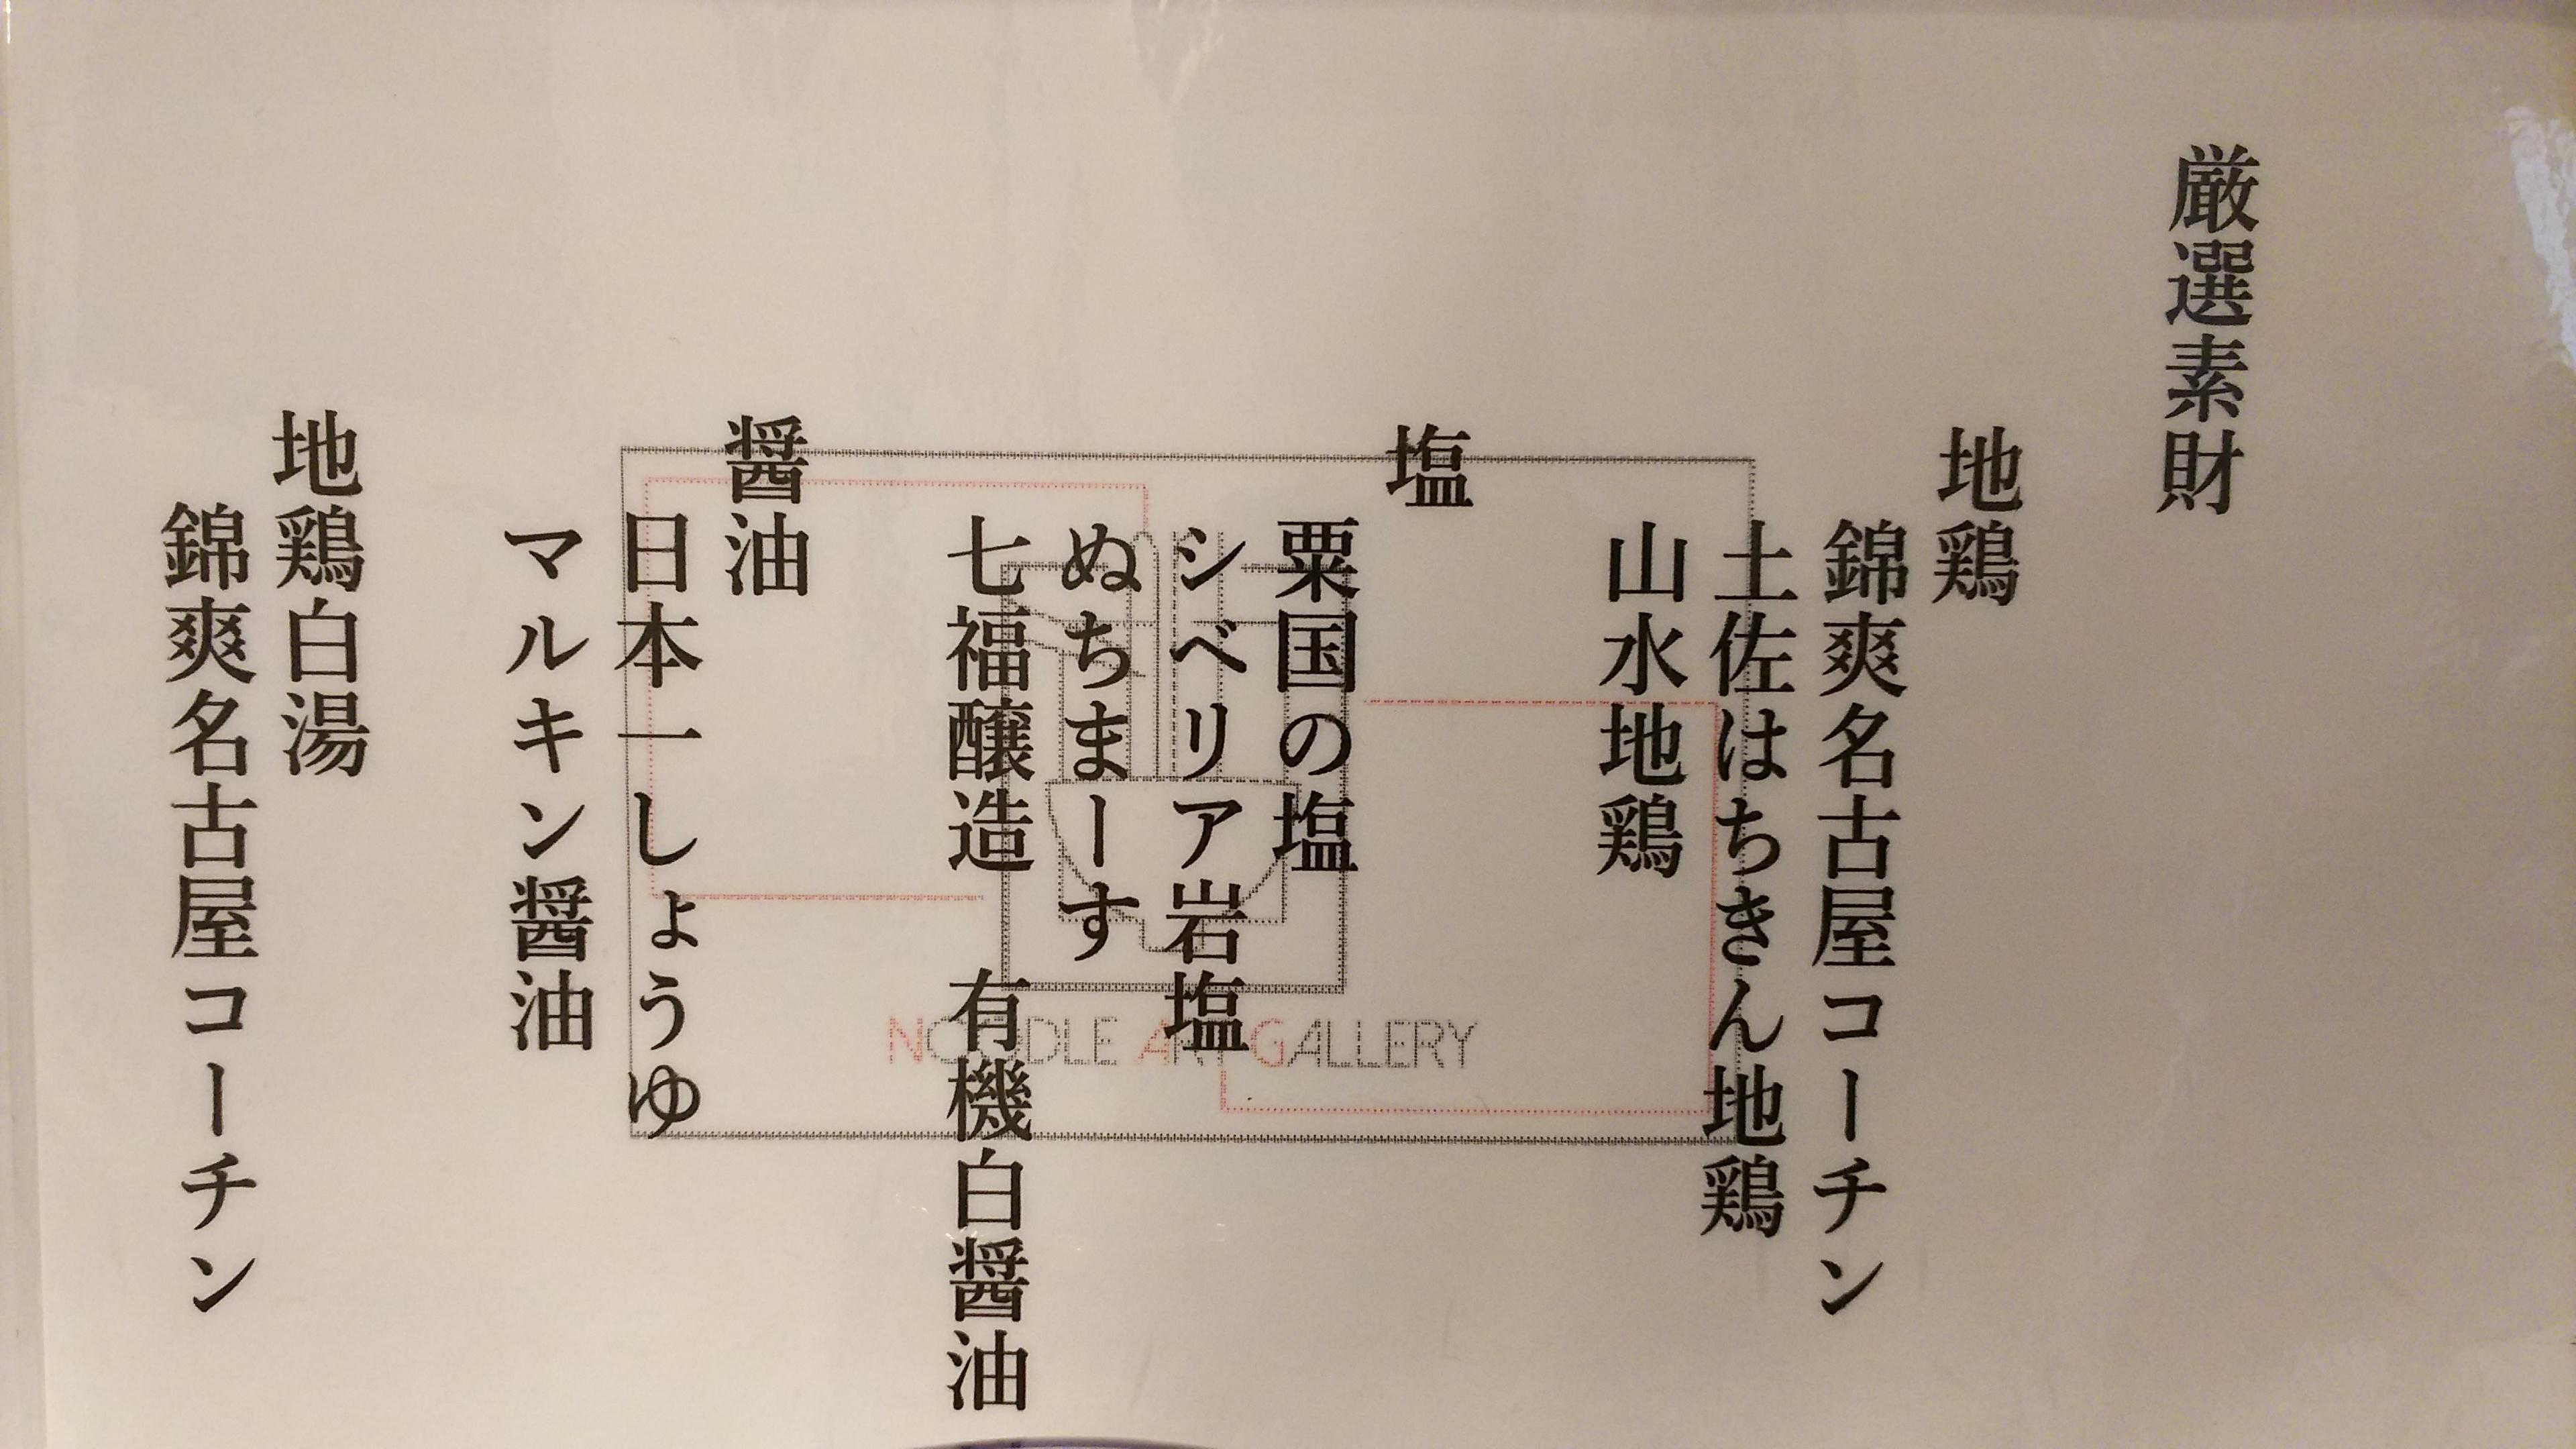 厳選素財
地鶏
錦爽名古屋コーチン
土佐はちきん地鶏
山水地鶏
塩
粟国の塩
シベリア岩塩
ぬちまーす
七福醸造　有機白醤油
醤油
日本一しょうゆ
マルキン醤油
地鶏白湯
錦爽名古屋コーチン
NOODLE ART GALLERY